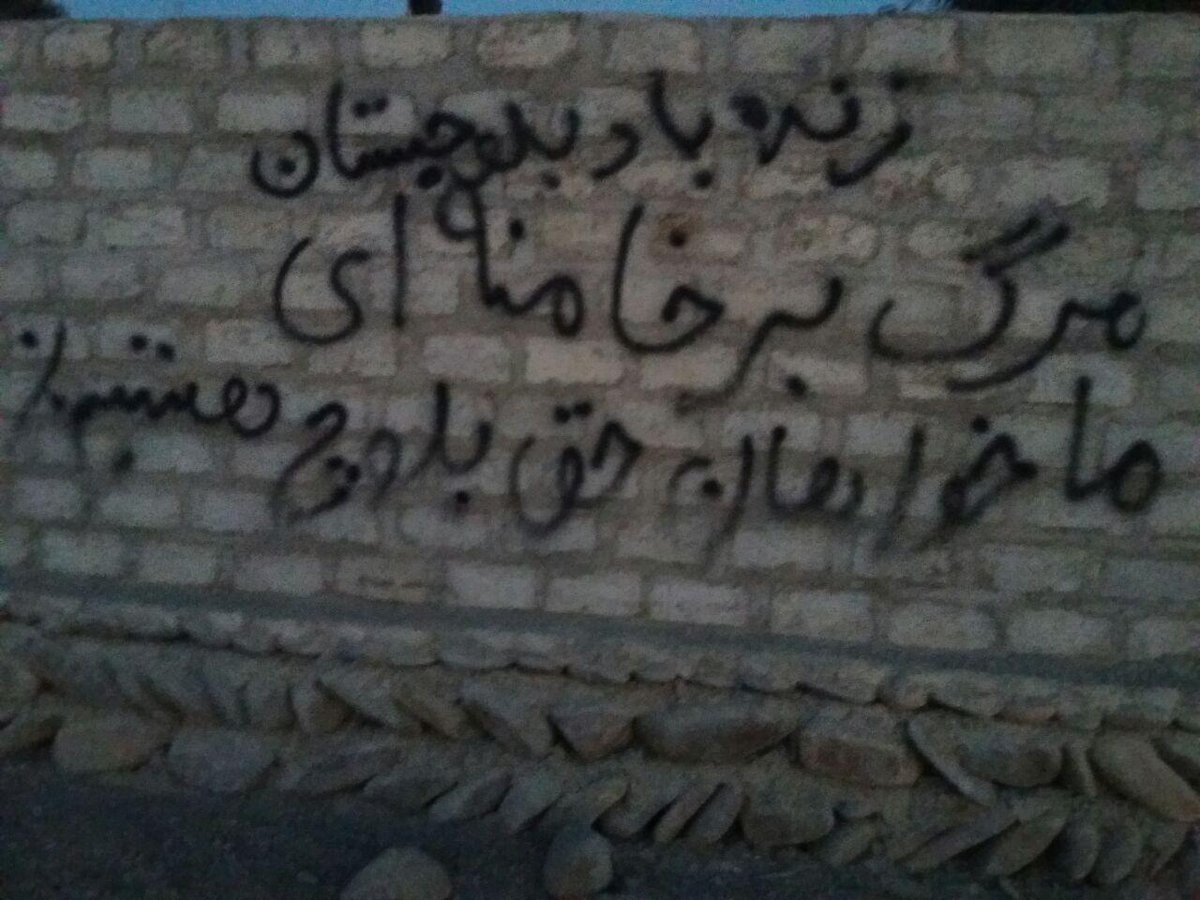 زنده باد بلوچستان
مرگ بر خامنه ای
ما خواهان حق بلوچ هستیم